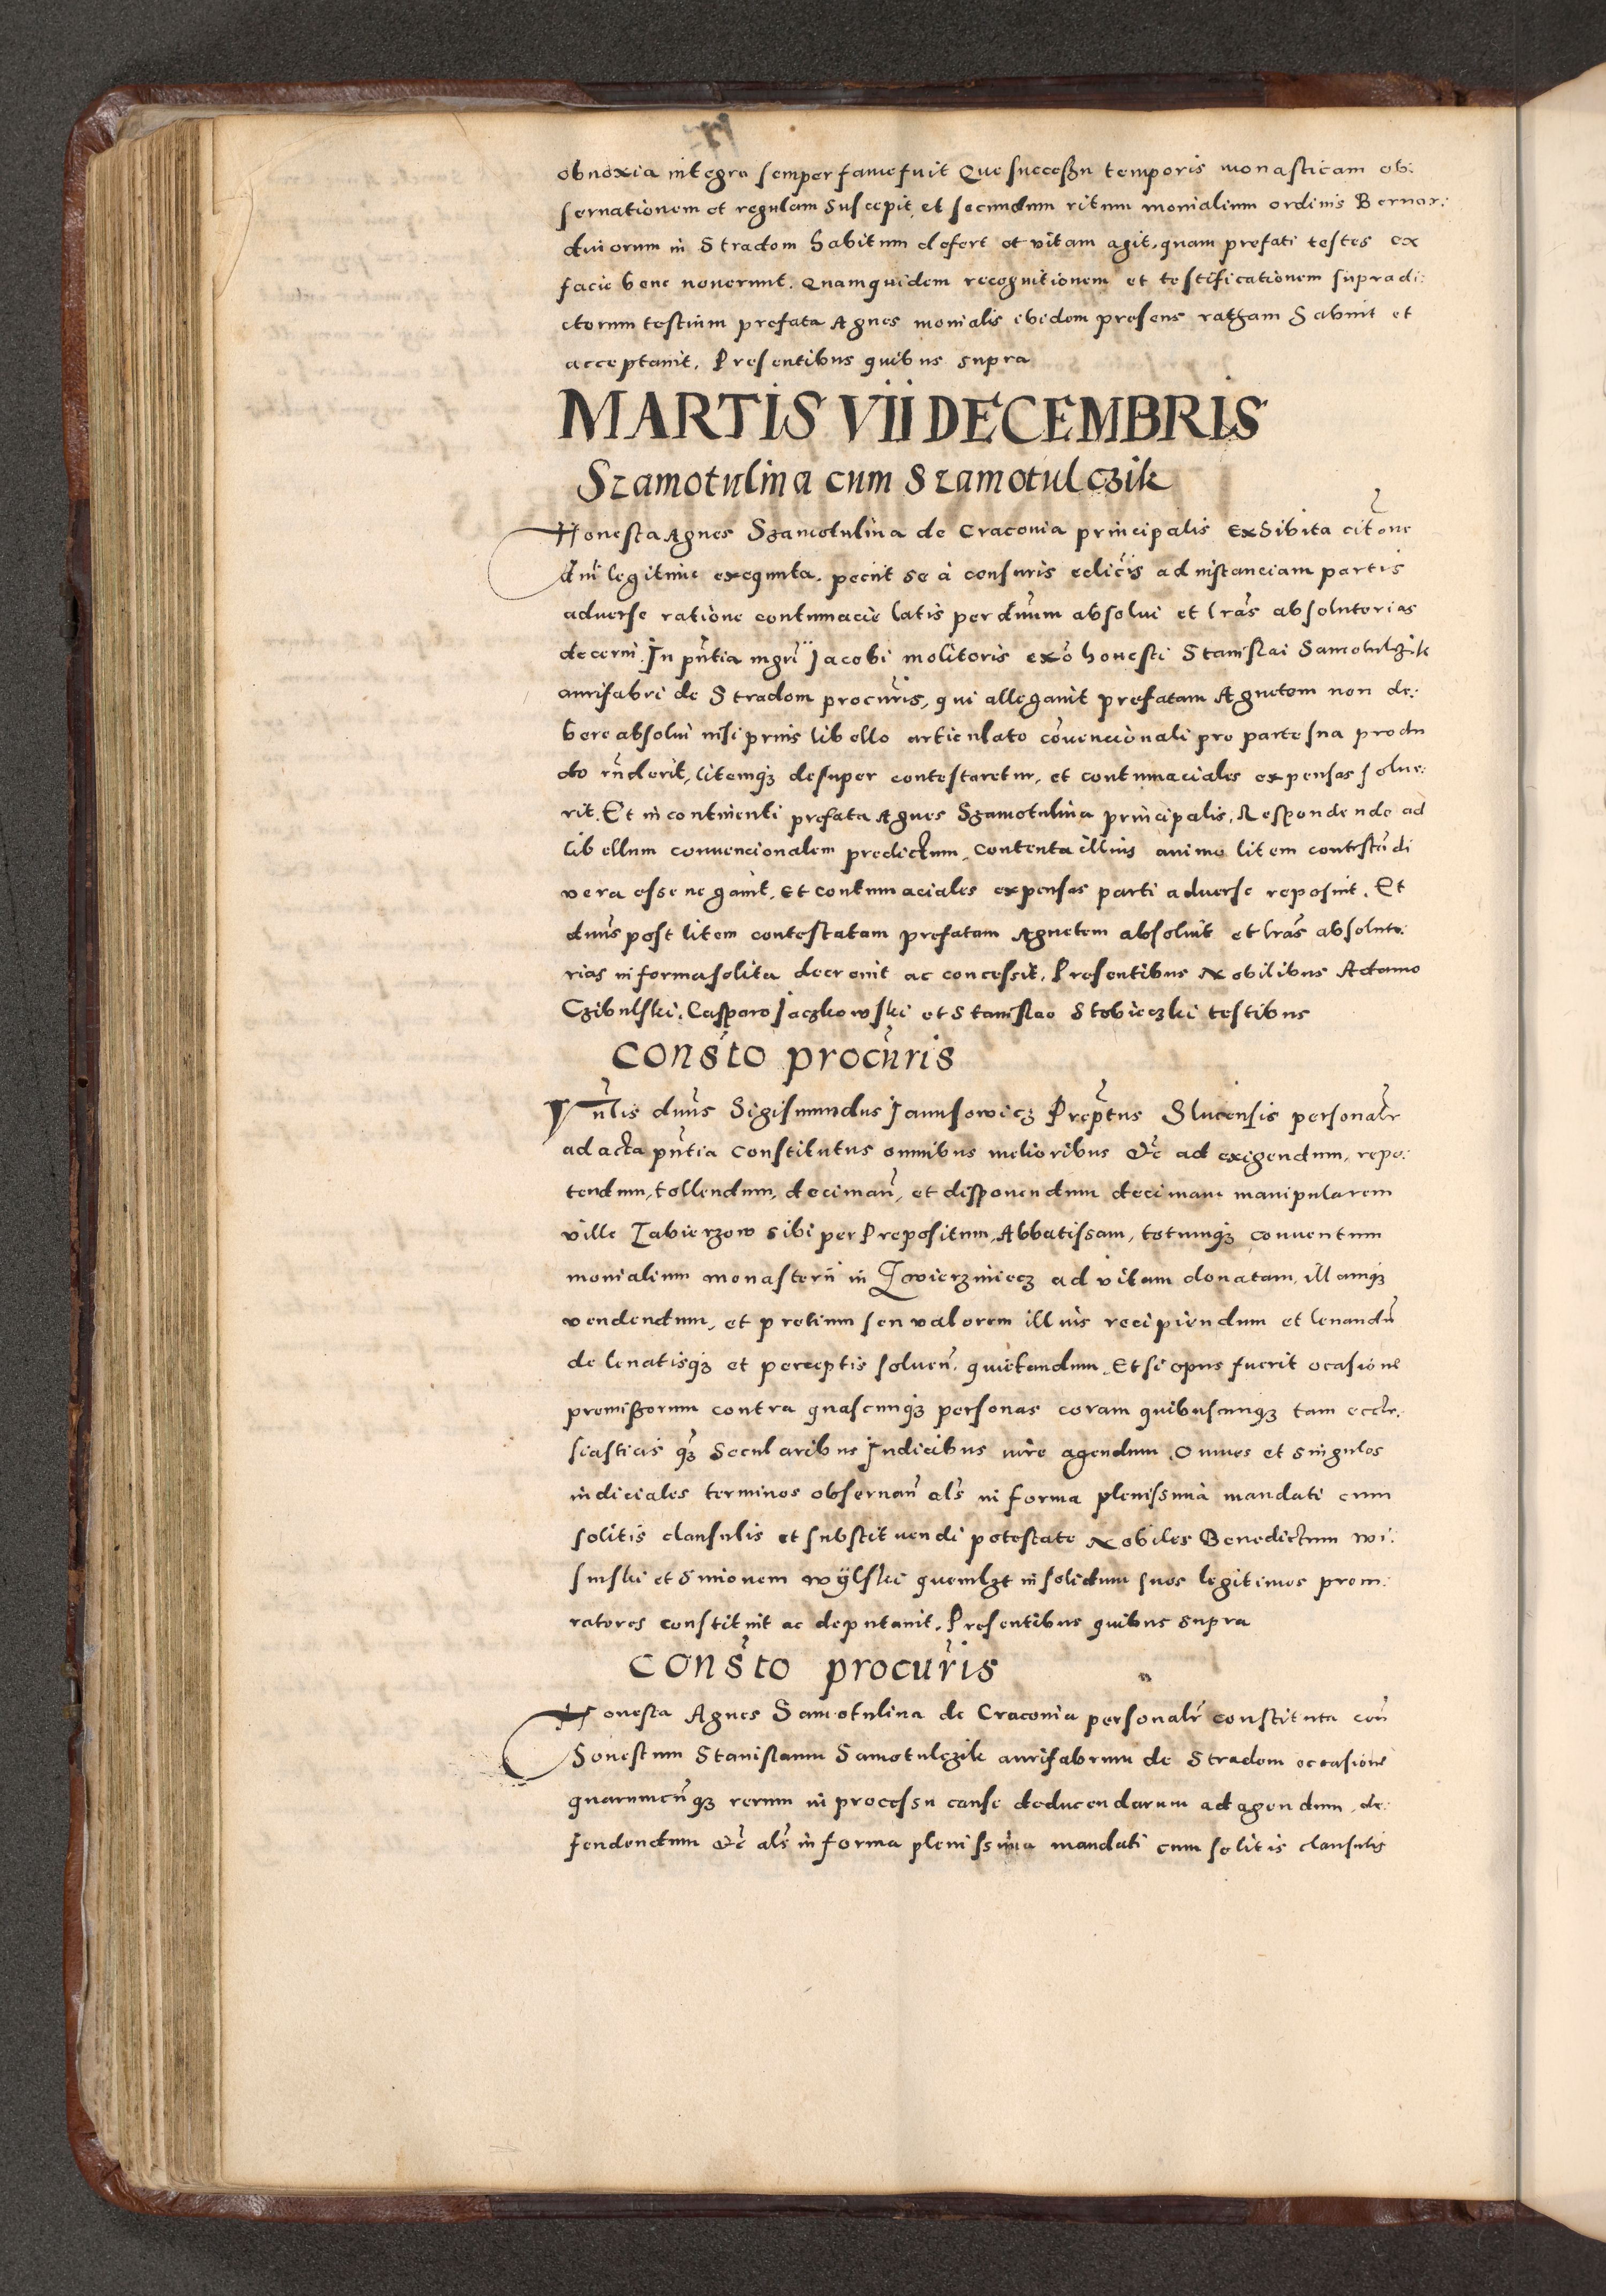 obnoxia integra semper fame fuit Que successu temporis monasticam ob:
servationem et regulam suscepit et secundum ritum monialium ordinis Bernar:
dinorum in Stradom habitum defert et vitam agit, quam prefati testes ex
facie bene noverunt. Quamquidem recognitionem et testificationem supradi:
ctorum testium prefata Agnes monialis ibidem presens ratham habuit et
acceptavit. Presentibus quibus supra
MARTIS VII DECEMBRIS
Szamotulina cum Szamotulczik
Honesta Agnes Szamotulina de Cracovia principalis Exhibita citone
dni legitime exequuta. peciit se à censuris eclicis ad instanciam partis
adverse ratione contumacie latis per dnum absolvi et lras absolutorias
decerni. In pntia mgri Jacobi molitoris exo honesti Stanislai Samotulczik
aurifabri de Stradom procuris, qui allegavit prefatam Agnetem non de:
bere absolvi nisi prius libello articulato convencionali pro parte sua produ
cto rnderit, litemqz desuper contestaretur, et contumaciales expensas solve:
rit. Et in continenti prefata Agnes Szamotulina principalis, Respondendo ad
libellum convencionalem predictum, contenta illius animo litem contestandi
vera esse negavit, Et contumaciales expensas parti adverse reposuit. Et
dnus post litem contestatam prefatam Agnetem absolvit et lras absoluto:
rias in forma solita decrevit ac concessit. Presentibus Nobilibus Adamo
Czibulski, Casparo Jaczkowski et Stanislao Stobieczki testibus
Consto procuris
Vnlis dnus Sigismundus Jamsowicz Preptus Slucensis personalr
ad acta pntia constitutus omnibus melioribus &c ad exigendum, repe:
tendum, tollendum, deciman, et disponendum decimam manipularem
ville Zabierzow sibi per Prepositum, Abbatissam, totumqz conventum
monialium monasterii in Zwierzyniecz ad vitam donatam, illamqz
vendendum, et pretium seu valorem illius recipiendum et levandu
de levatisqz et perceptis solven. quietandum. Et si opus fuerit ocasione
premissorum contra quascunqz personas coram quibuscunqz tam eccle:
siasticis qz Secularibus Judicibus iure agendum. Omnes et singulos
iudiciales terminos observan als in forma plenissima mandati cum
solitis clausulis et substituendi potestate Nobiles Benedictum Wi:
sinski et Simonem wÿlski quemlzt in solidum suos legitimos procu:
ratores constituit ac deputavit. Presentibus quibus supra
Consto procuris
Honesta Agnes Samotulina de Cracovia personalr constituta con
honestum Stanislaum Samotulczik aurifabrum de Stradom occasione
quarumcunqz rerum in processu cause deducendarum ad agendum, de:
fendendum &c als in forma plenissima mandati cum solitis clausulis